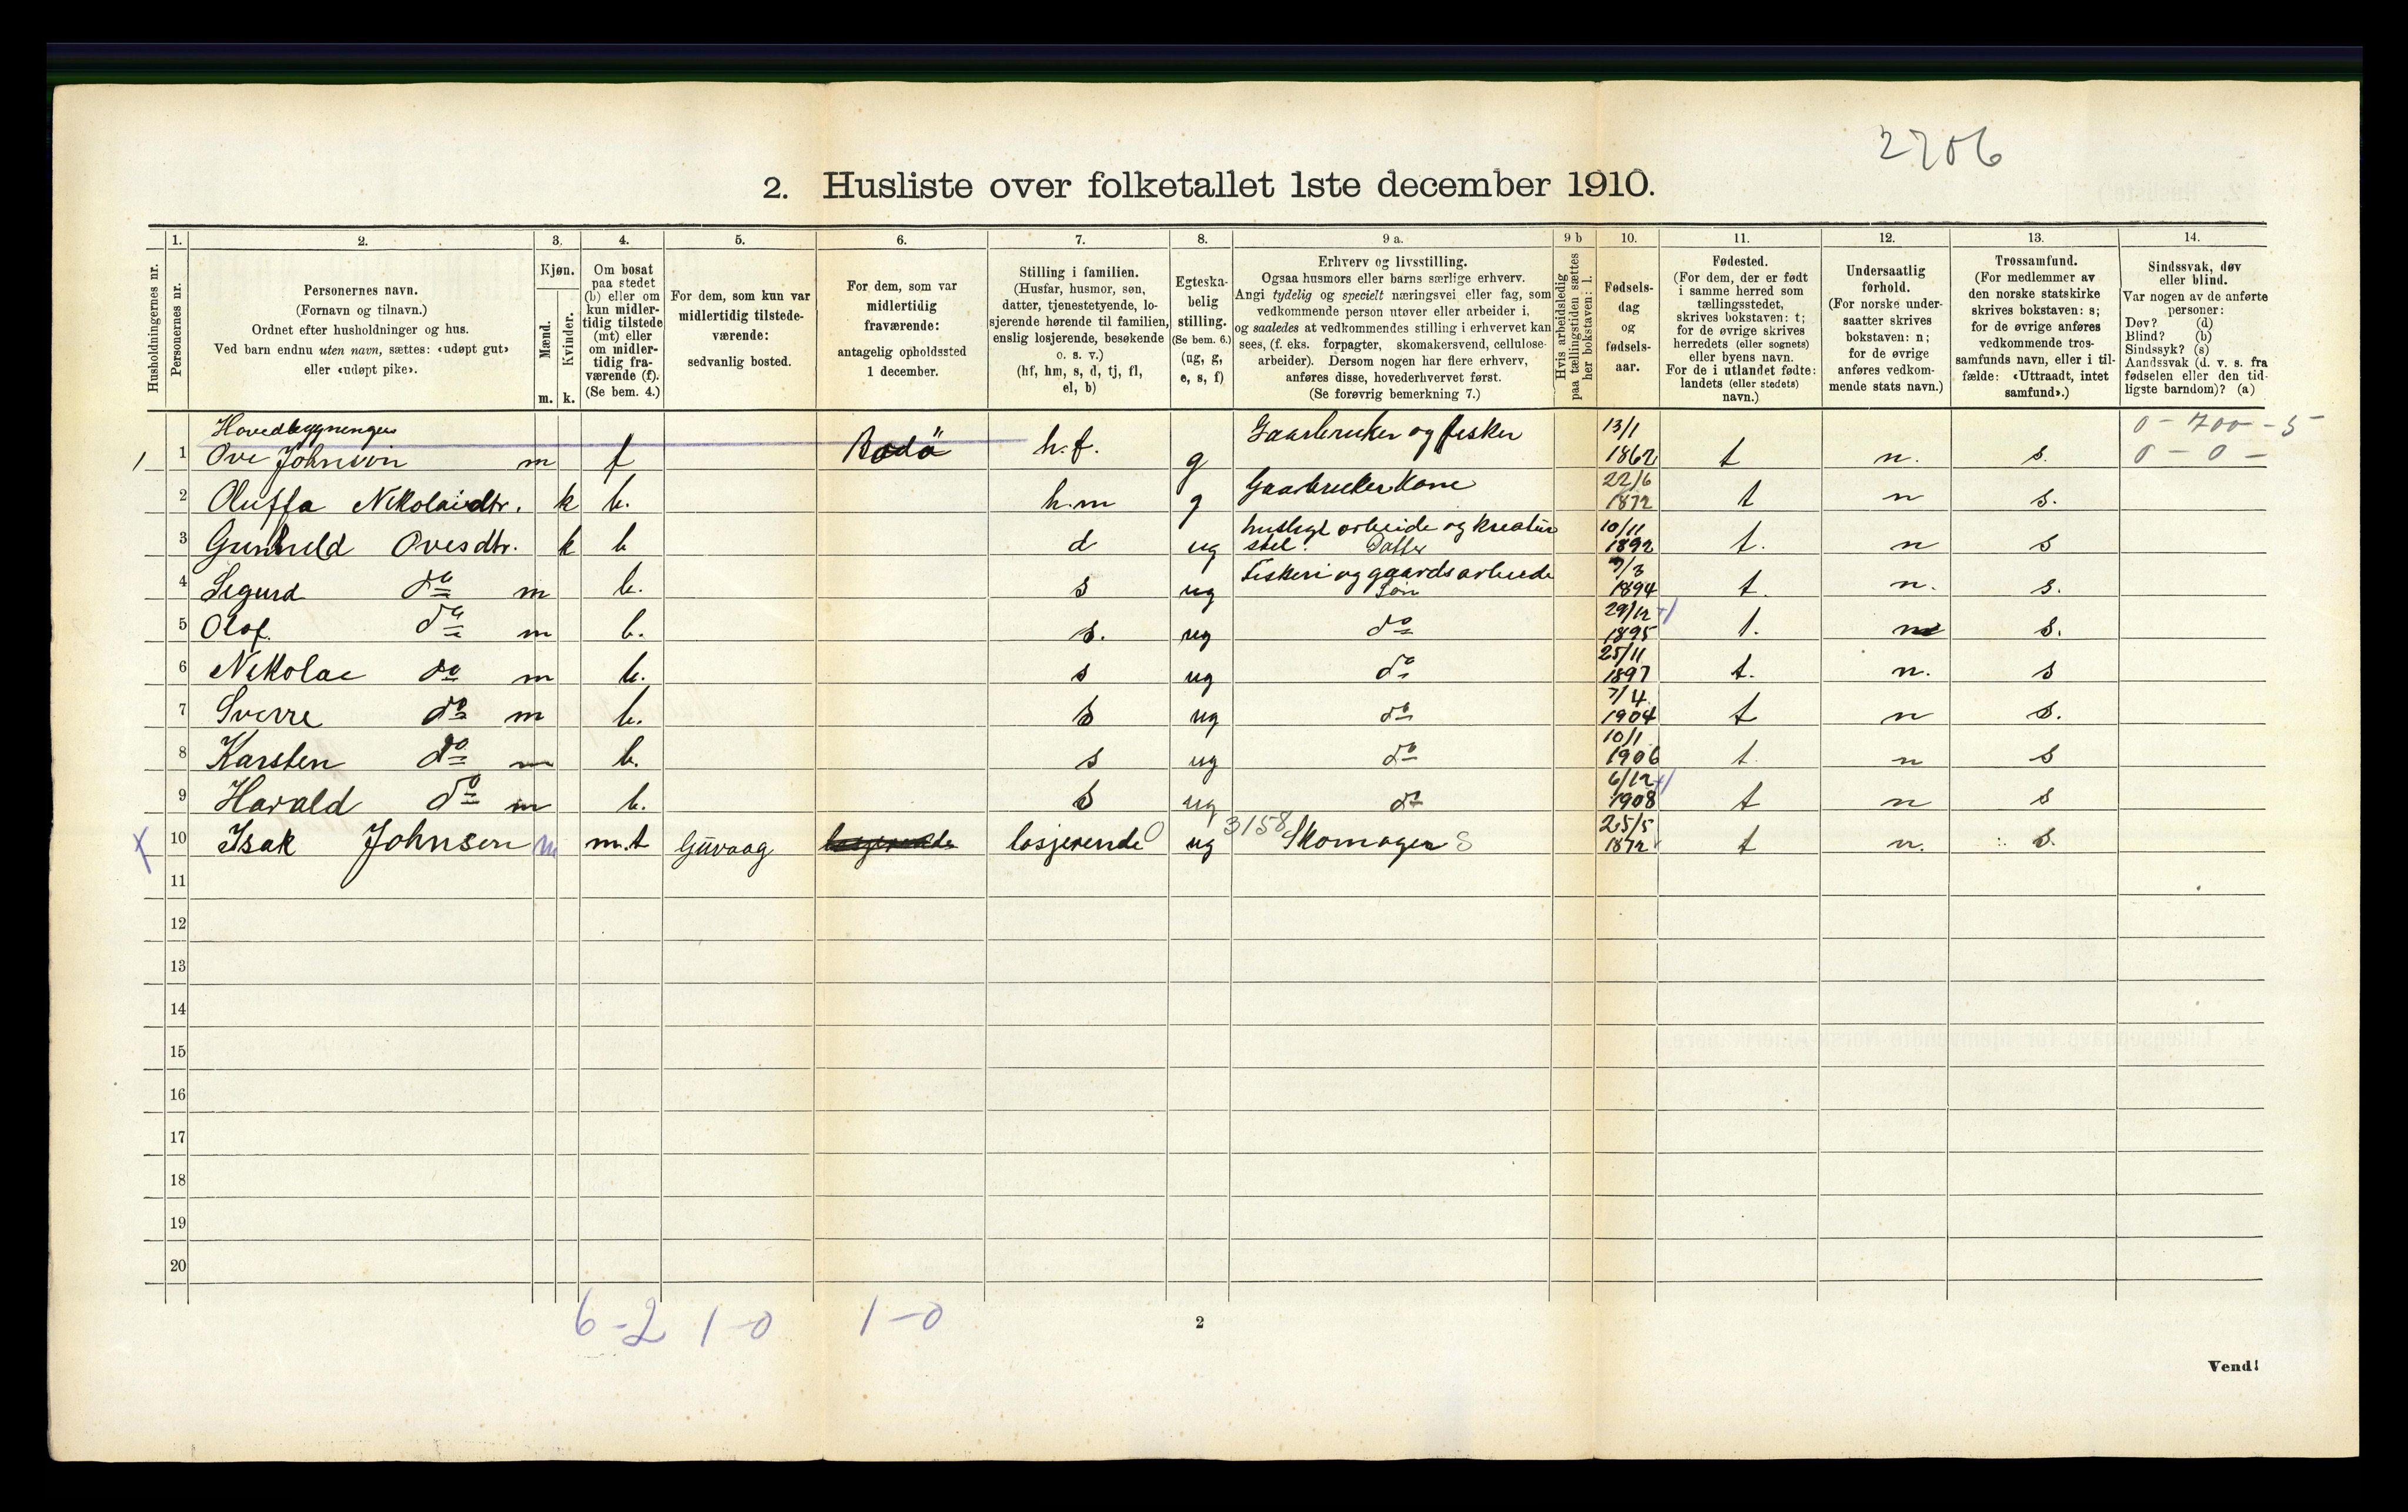 2706
2. Husliste over folketallet 1ste december 1910.
1. 2. 3. 4. 5. 6. 7. 8. 9 a. 9 b 10. 11. 12. 13. 14.
Husholdningernes nr.
Personernes nr.
Personernes navn.
(Fornavn og tilnavn.)
Ordnet efter husholdninger og hus.
Ved barn endnu uten navn, sættes: «udøpt gut»
eller «udøpt pike».
Kjøn.
Mænd.
Kvinder.
m. k.
Om bosat
paa stedet
(b) eller om
kun midler-
tidig tilstede
(mt) eller
om midler-
tidig fra-
værende (f).
(Se bem. 4.)
For dem, som kun var
midlertidig tilstede-
værende:
sedvanlig bosted.
For dem, som var
midlertidig
fraværende:
antagelig opholdssted
1 december.
Stilling i familien.
(Husfar, husmor, søn,
datter, tjenestetyende, lo-
sjerende hørende til familien,
enslig losjerende, besøkende
o. s. v.)
(hf, hm, s, d, tj, fl,
el, b)
Egteska-
belig
stilling.
(Se bem. 6.)
(ug, g,
e, s, f)
Erhverv og livsstilling.
Ogsaa husmors eller barns særlige erhverv.
Angi tydelig og specielt næringsvei eller fag, som
vedkommende person utøver eller arbeider i,
og saaledes at vedkommendes stilling i erhvervet kan
sees, (f. eks. forpagter, skomakersvend, cellulose-
arbeider). Dersom nogen har flere erhverv,
anføres disse, hovederhvervet først.
(Se forøvrig bemerkning 7.)
Hvis arbeidsledig
paa tællingstiden sættes
her bokstaven: l.
Fødsels-
dag
og
fødsels-
aar.
Fødested.
(For dem, der er født
i samme herred som
tællingsstedet,
skrives bokstaven: t;
for de øvrige skrives
herredets (eller sognets)
eller byens navn.
For de i utlandet fødte:
landets (eller stedets)
navn.)
Undersaatlig
forhold.
(For norske under-
saatter skrives
bokstaven: n;
for de øvrige
anføres vedkom-
mende stats navn.)
Trossamfund.
(For medlemmer av
den norske statskirke
skrives bokstaven: s;
for de øvrige anføres
vedkommende tros-
samfunds navn, eller i til-
fælde: «Uttraadt, intet
samfund».)
Sindssvak, døv
eller blind.
Var nogen av de anførte
personer:
Døv? (d)
Blind? (b)
Sindssyk? (s)
Aandssvak (d. v. s. fra
fødselen eller den tid-
ligste barndom)? (a)
Hovedbygningen
13/1 0 - 700 - 5
1 1 Ove Johnsen m f Bodö h.f. g Gaarbruker og fisker 1862 t n. s. 0 - 0 -
22/6
2 Oluffa Nikolaidtr. k b. h.m g Gaarbruker Kone 1872 t n s.
huslegt arbeide og kreatur 10/11
3 Gunhild Ovesdtr. k b d ug stel. Datter 1892 t. n s
Fiskeri og gaards arbeide 7/3
4 Sigurd do m b. s ug Søn 1894 t. n. s.
29/12
5 Olaf do m b. s. ug do 1895 t. n s.
25/11
6 Nikolae do m b. s ug do 1897 t. n. s
7/4
7 Sverre do m b. s ug do 1904 t n s.
10/1
8 Karsten do m b. s ug do 1906 t n s
6/12
9 Harald do m b. s ug do 1908 t n s
3158 25/5
x 10 Isak Johnsen m m.t Guvaag losjerende losjerende ug Skomager S 1872 t n. s.
11
12
13
14
15
16
17
18
19
20
6-2 1-0 1-0
2
Vend!